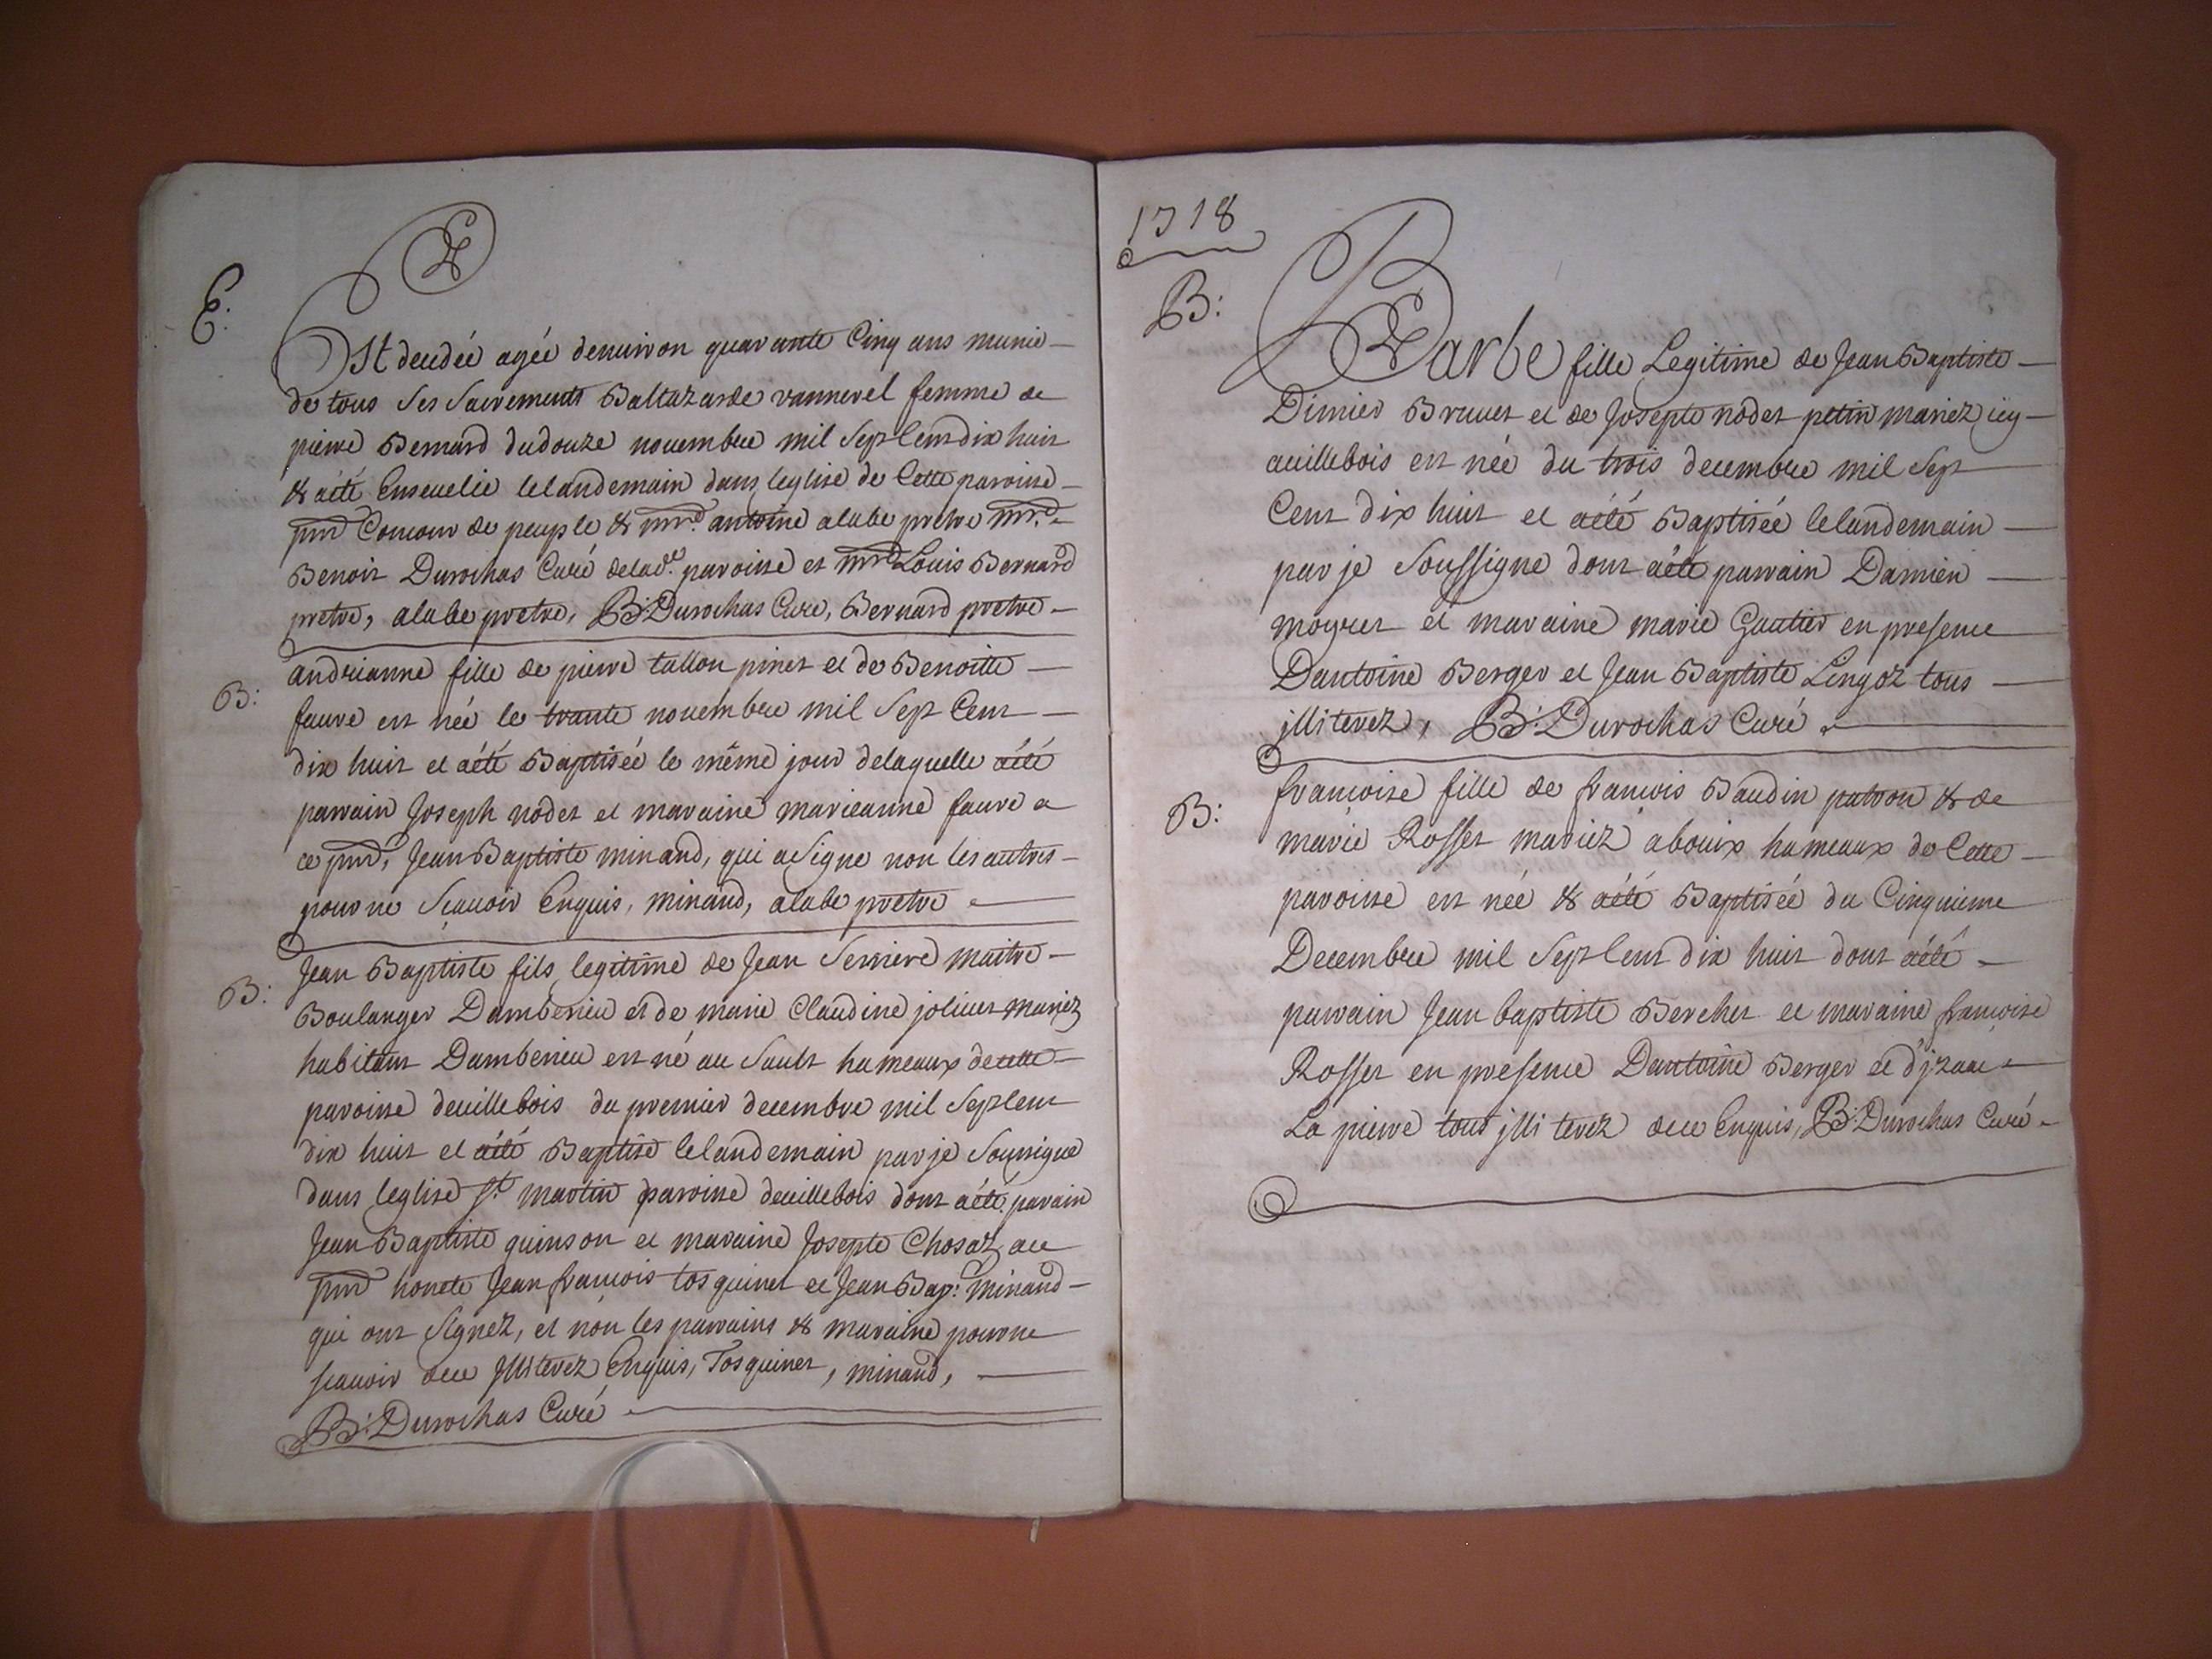 E:
Est decedée agée denuiron quarante Cinq ans munie
de tous ses sacrements Baltazarde vannerel femme de
pierre Bernard du douze nouembre mil Sept Cent dix huit
& aété Enseuelie lelandemain dans leglise de Cette paroisse
pnt Concour de peuple & mre antoine alabe pretre mre
Benoit Durochas Curé delade paroisse et mre Louis Bernard
pretre, alabe pretre, B: Durochas Curé, Bernard pretre
B:
andrianne fille de pierre tallon pinet et de Benoitte
faure est née le trante nouembre mil Sept Cent
dix huit et aété Baptisée le même jour delaquelle aété
parrain Joseph nodet et maraine marieanne faure a
ce pnt, Jean Baptiste minand, qui a Signe non les autres
pour ne Sçauoir Enquis, minand, alabe pretre
B:
Jean Baptiste fils legitime de Jean Serriere maitre
Boulanger Damberieu et de marie Claudine joliuet mariez
habitant Damberieu est né au Sault hameaux decette
paroisse deuillebois du premier decembre mil Sept Cent
dix huit et aété Baptisé lelandemain par je Soussigne
dans leglise St martin paroisse deuillebois dont aété parain
Jean Baptiste quinson et maraine Josepte Chosaz au
pnt honete Jean françois tosquinet et Jean Bap: minand
qui ont Signez, et non les parrains & maraine pour ne
scauoir deu jlliterez Enquis, Tosquinet, minand,
B: Durochas Curé
1718
B:
Barbe fille Legitime de Jean Baptiste
Dimier Bruuet et de Josepte nodet petin mariez icy
auillebois est née du trois decembre mil Sept
Cent dix huit et aété Baptisée lelandemain
par je Soussigne dont aété parrain Damien
moyret et maraine marie Gautier en presence
Dantoine Berger et Jean Baptiste Lingoz tous
jlliterez, B: Durochas Curé
B:
françoise fille de françois Baudin patron & de
marie Rosset mariez abouix hameaux de Cette
paroisse est née & aété Baptisée du Cinquieme
Decembre mil Sept Cent dix huit dont aété
parrain Jean baptiste Berchet et maraine françoise
Rosset en presence Dantoine Berger et d'jzaac
La pierre tous jlli terez deu Enquis, B: Durochas Curé